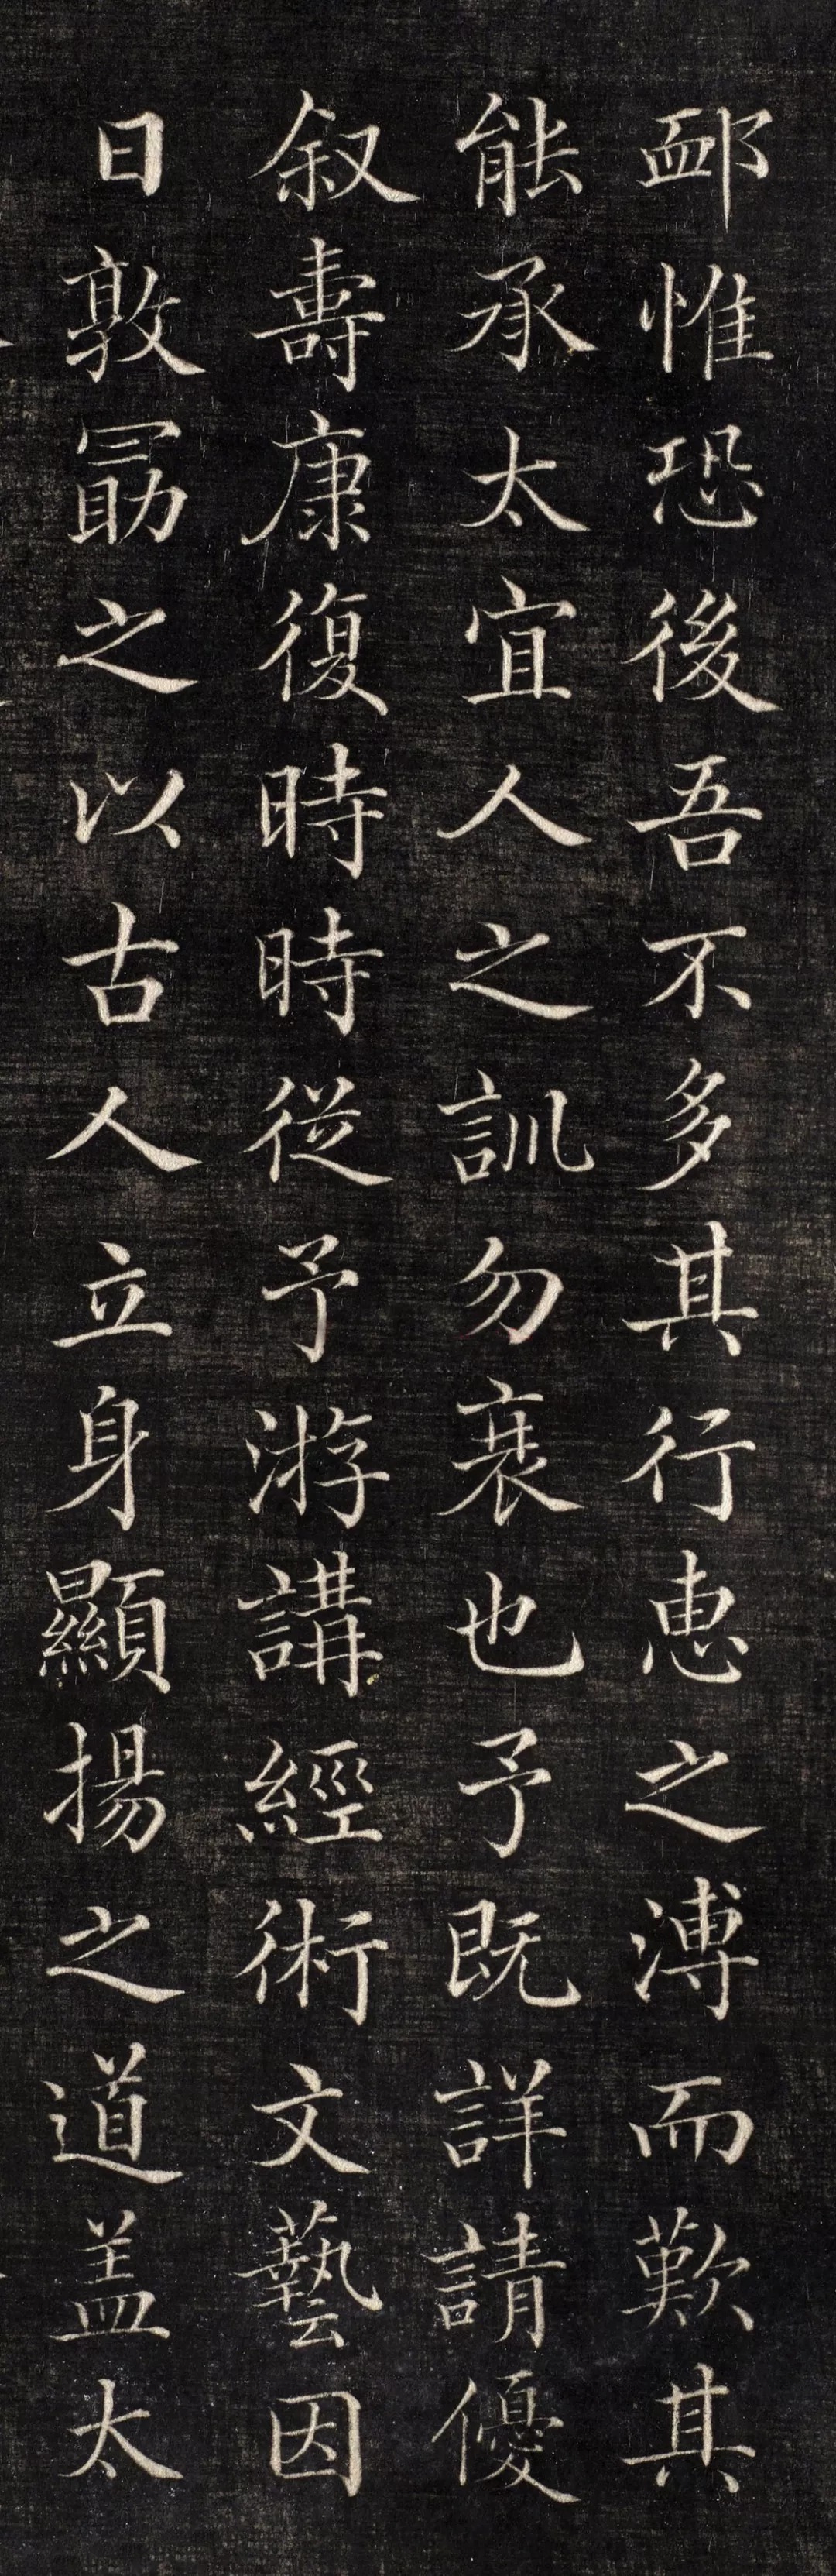 卹惟恐後吾不多其行恵之溥而歎其
能承太宜人之訓勿衰也予既詳請優
叙壽康復時時從予游講經術文藝因
日敦勗之以古人立身顯揚之道盖太